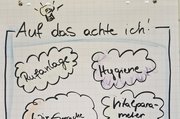 Auf das achte ich!
Rufanlage
Hygiene
Vitalpara-
meter